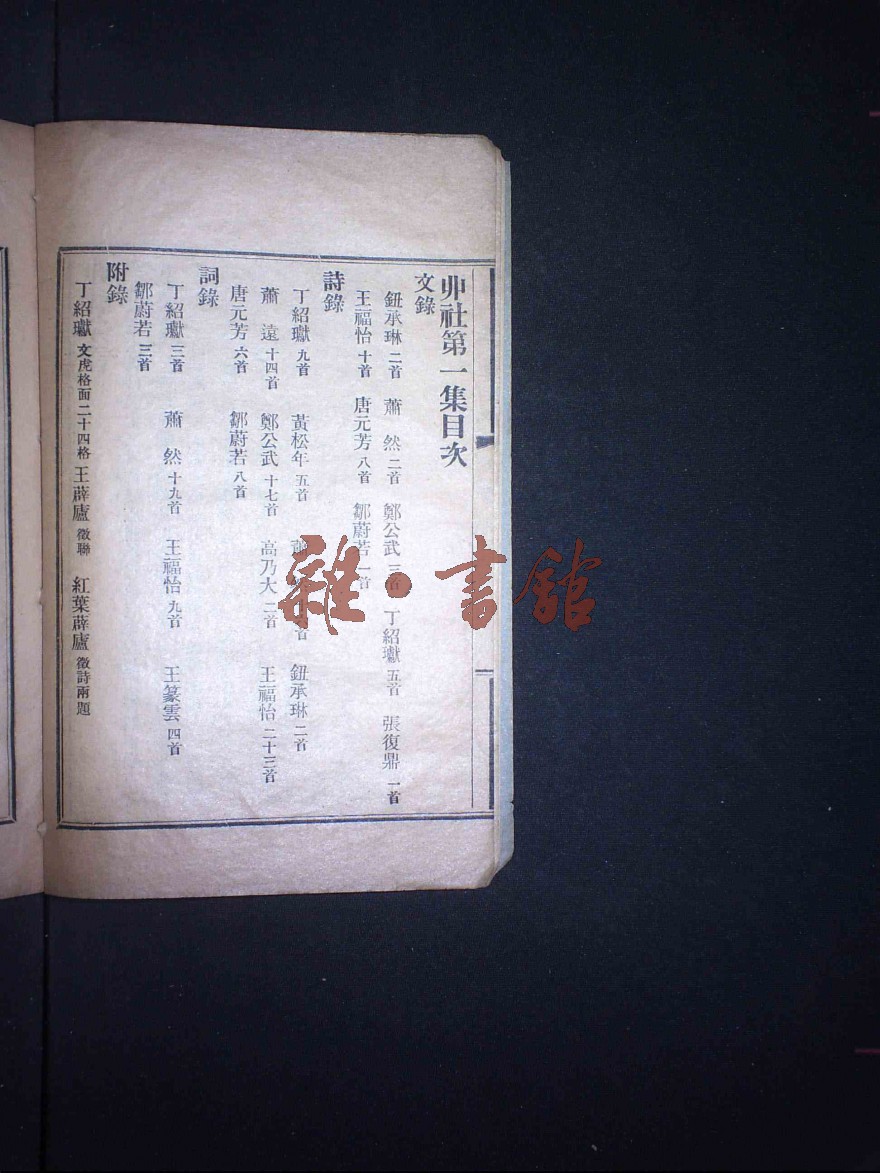 丱社第一集目次
文錄
鈕承琳 二首 蕭 然 二首 鄭公武 三首 丁紹瓛 五首 張復鼎 一首
王福怡 十首 唐元芳 八首 鄒蔚若 一首
詩錄
丁紹瓛 九首 黃松年 五首 鈕承琳 二首
蕭 遠 十四首 鄭公武 十七首 高乃大 二首 王福怡 二十三首
唐元芳 六首 鄒蔚若 八首
詞錄
丁紹瓛 三首 蕭 然 十九首 王福怡 九首 王篆雲 四首
鄒蔚若 三首
附錄
丁紹瓛 文虎格面二十四格 王薜廬 徵聯 紅葉薜廬 徵詩兩題
雜·書館